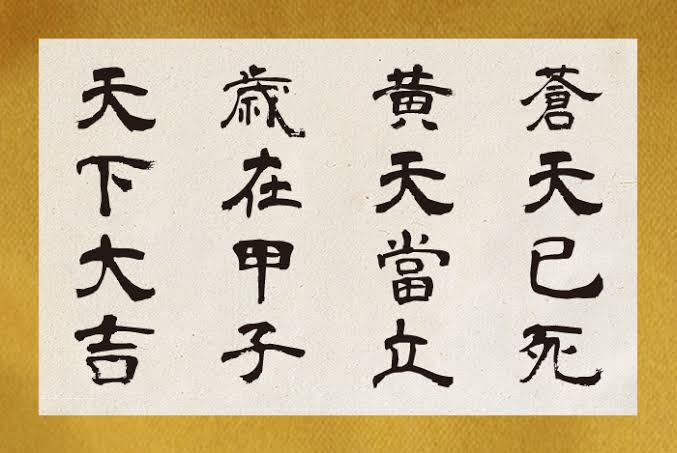 蒼天已死
黄天當立
歳在甲子
天下大吉